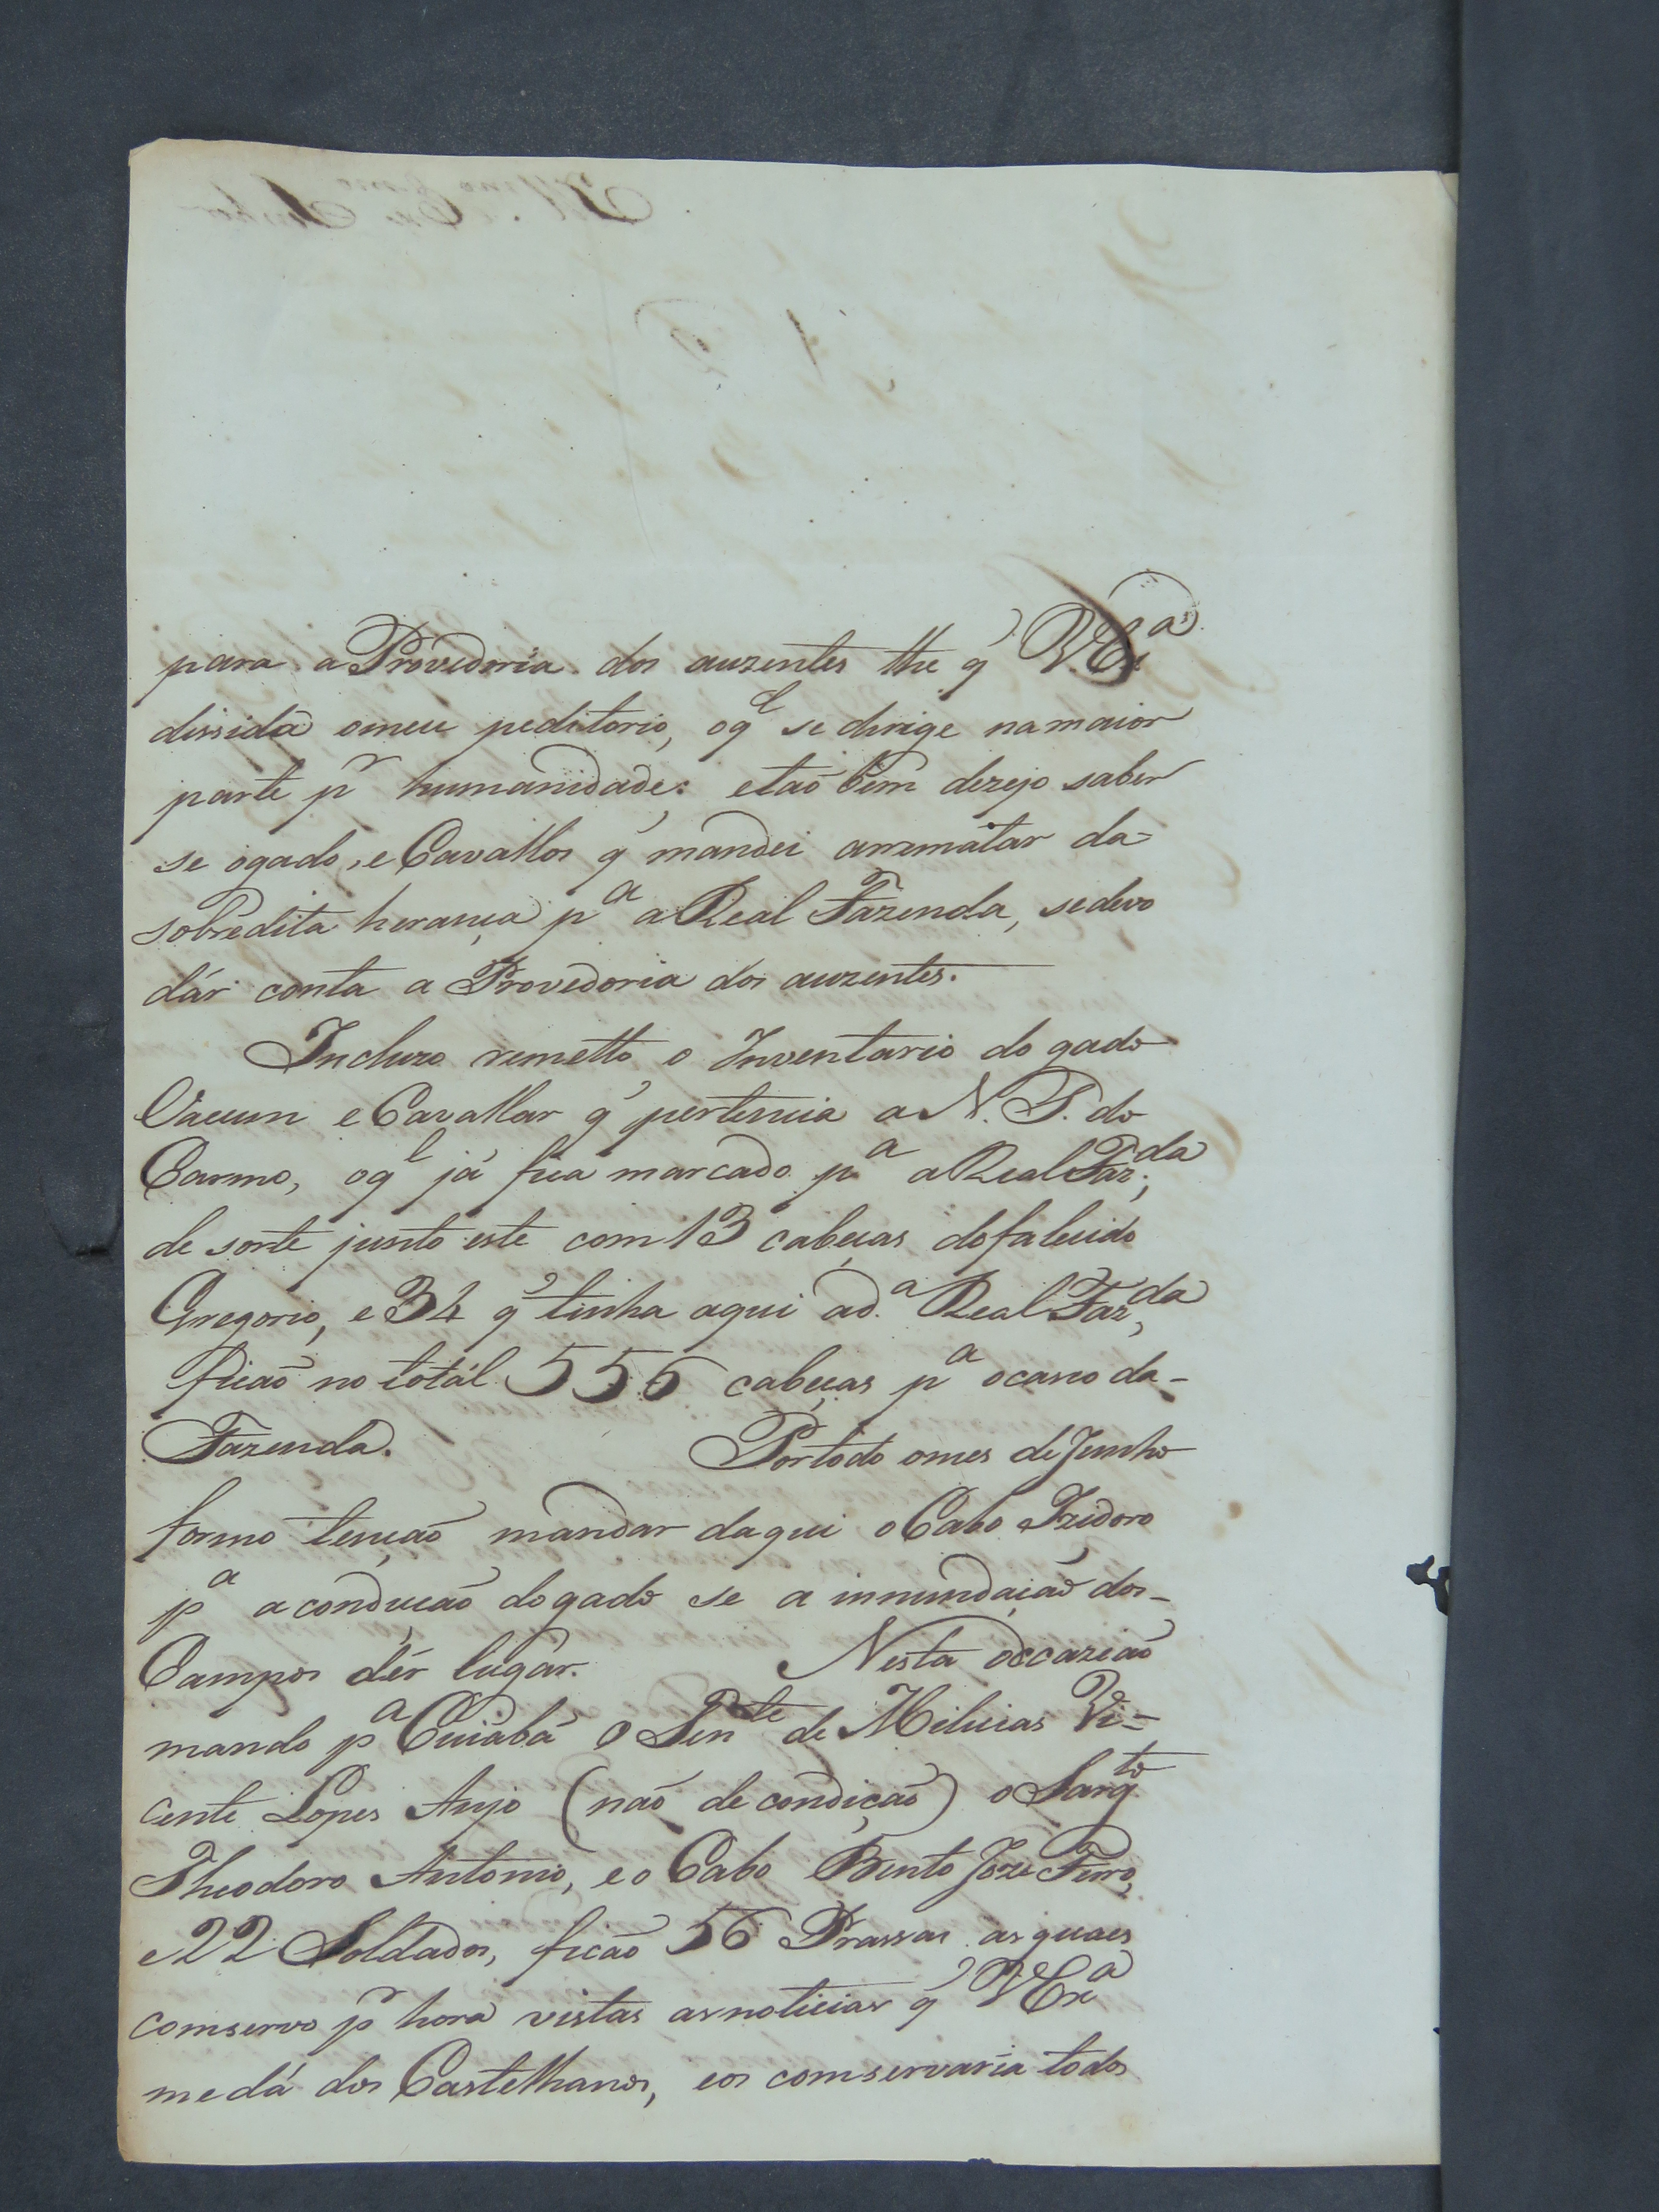 para a Provedoria dos auzentes the q' V. Exª
dissida o meu peditorio, o q.l se dirige na maior
parte p.r humanidade: e taõ bem dezejo saber
se o gado, e Cavallos q' mandei arrematar da
sobredita herança pª a Real Fazenda, se devo
dár conta a Provedoria dos auzentes.
Incluzo remetto o Inventario do gado
Vacum e Cavallar q' pertencia a N. S. do
Carmo, o q.l já fica marcado pª a Real Faz.da;
de sorte junto este com 13 cabeças do falecido
Gregorio, e 34 q' tinha aqui a d.ª Real Faz.da,
ficaõ no totál 556 cabeças pª o casco da-
Fazenda. Por todo o mes de Junho
formo tençaõ mandar daqui o Cabo Izidoro
pª a conduçaõ do gado se a innundaçaõ dos-
Campos dér lugár. Nesta occaziaõ
mando pª Cuiabá o Ten.te de Milicias Vi-
cente Lopes Anjo (naõ de condiçaõ) o Sarg.to
Theodoro Antonio, e o Cabo Bento Joze Ferro,
e 22 Soldados, ficaõ 56 Prassas as quaes
comservo p.r hora vistas as noticias q' V Exª
me dá dos Castelhanos, e os comservaria todos